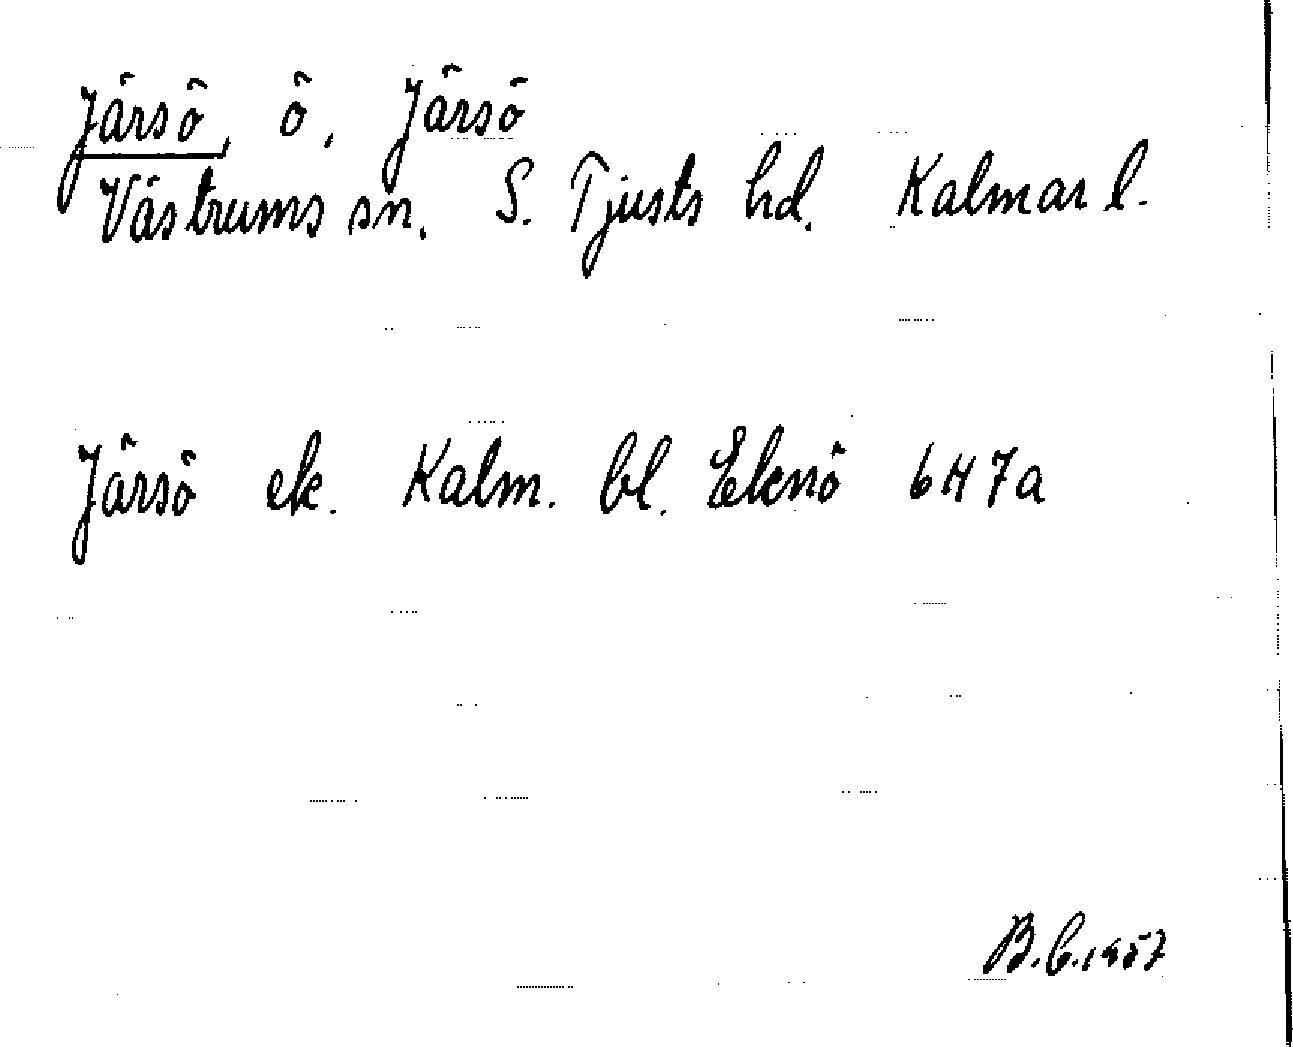 Järsö, ö, Järsö
Västrums sn. S. Tjusts hd. Kalmar l.
Järsö ek. Kalm. bl. Eknö 6H7a
B.C. 1957